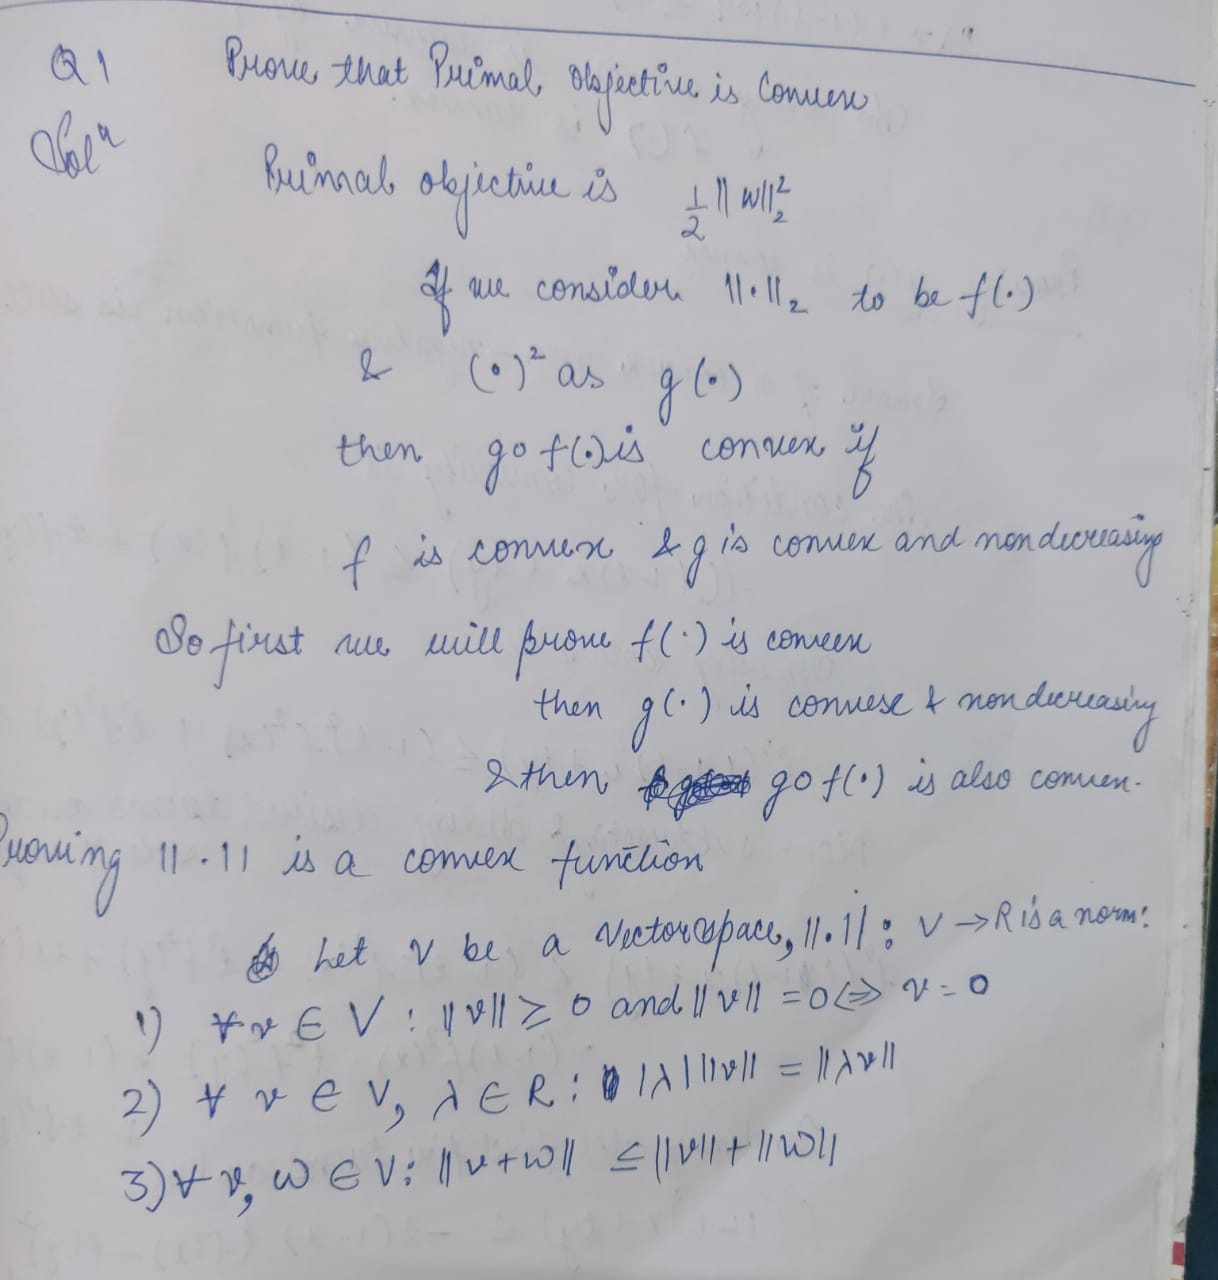 Q1 Prove that Primal objective is Convex
Solⁿ
Primal objective is 1/2 ||w||₂²
If we consider ||·||₂ to be f(·)
& (·)² as g(·)
then gof(·) is convex if
f is convex & g is convex and nondecreasing
So first we will prove f(·) is convex
then g(·) is convex & nondecreasing
& then gof(·) is also convex.
Proving ||·|| is a convex function
Let V be a vector space, ||·||: V → R is a norm:
1) ∀ v ∈ V : ||v|| ≥ 0 and ||v|| = 0 <=> v = 0
2) ∀ v ∈ V, λ ∈ R : |λ| ||v|| = ||λv||
3) ∀ v, w ∈ V: ||v+w|| ≤ ||v|| + ||w||